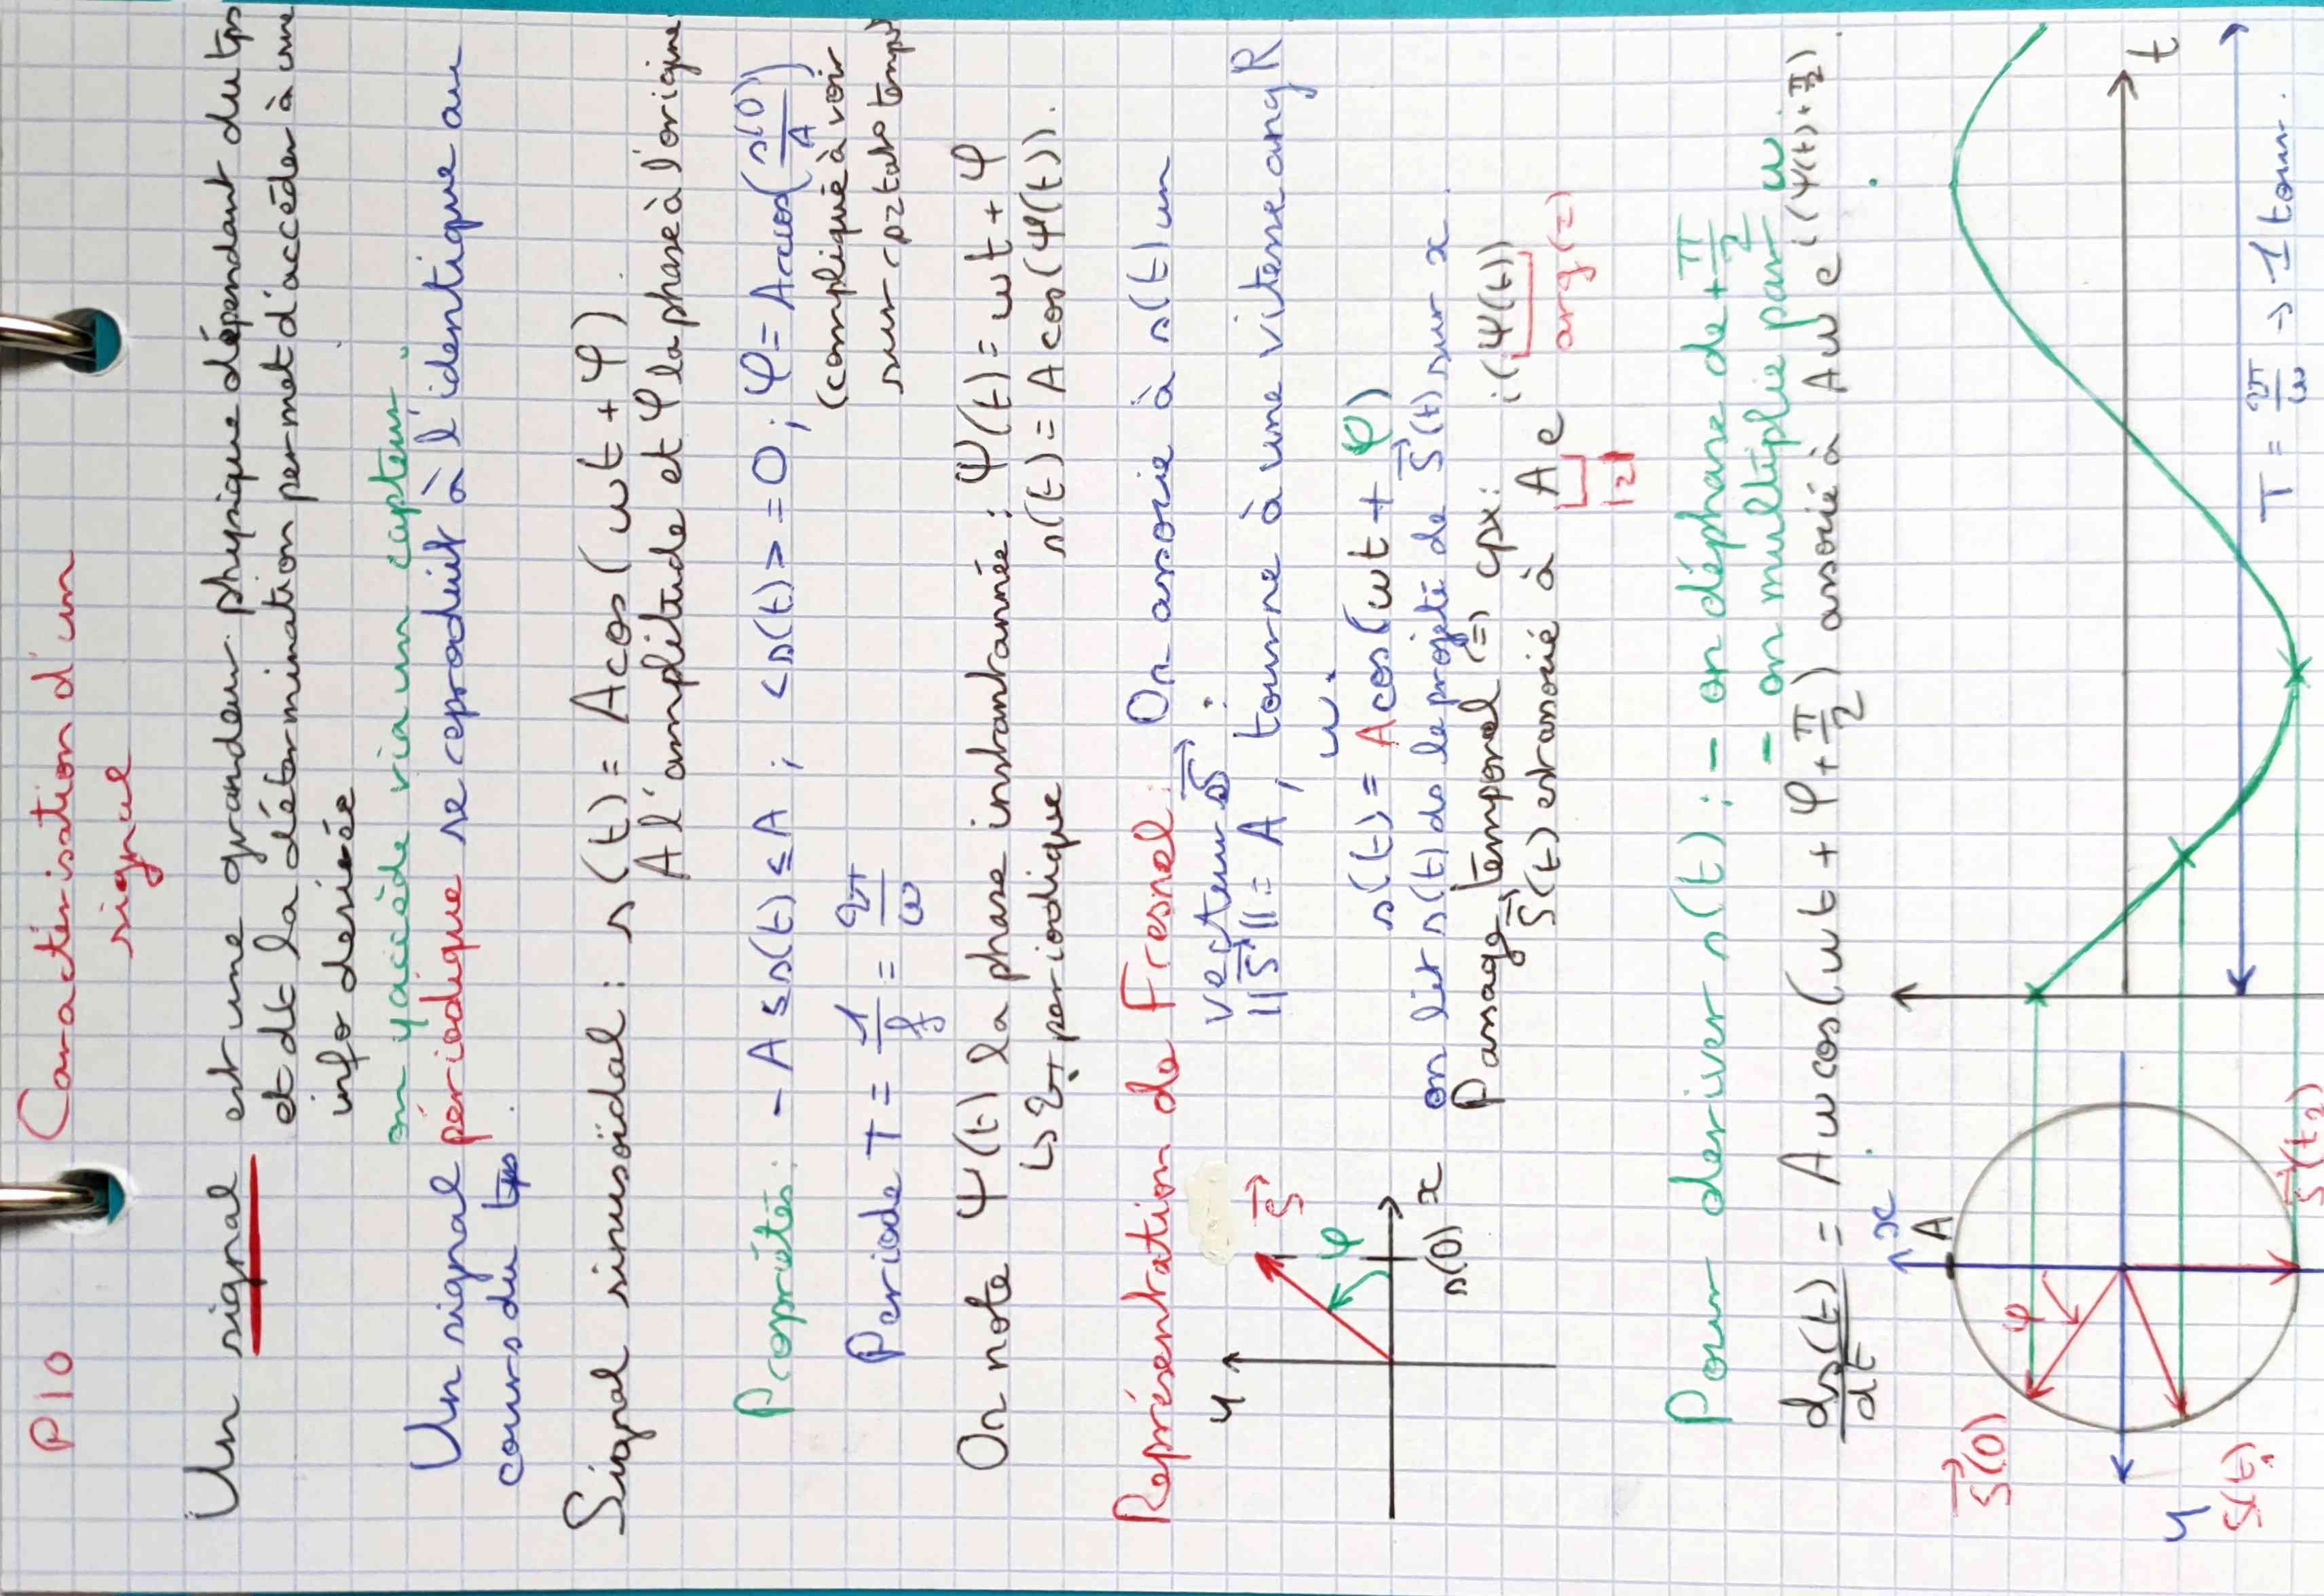 P10 Caractérisation d'un
signal
Un signal est une grandeur physique dépendant du tps
et dt la détermination permet d'accéder à une
info desirée
on y accède via un capteur.
Un signal périodique se reproduit à l'identique au
cours du tps.
Signal sinusoïdal : s(t) = A cos(ωt + φ)
A l'amplitude et φ la phase à l'origine
Propriétés : - A ≤ s(t) ≤ A ; <s(t)> = 0 ; φ = Arccos(s(0)/A)
(compliqué à voir
sur
Periode T = 1/f = 2π/ω
On note Ψ(t) la phase instantannée : Ψ(t) = ωt + φ
↳ 2π periodique s(t) = A cos(Ψ(t)).
Représentation de Fresnel : On associe à s(t) un
vecteur S⃗ :
||S⃗|| = A, tourne à une vitesse ang R
ω.
s(t) = A cos(ωt + φ)
on lit s(t) ds le projeté de S⃗(t) sur x.
Passage temporel (=) cpx :
S⃗(t) est associé à A e^i(Ψ(t))
|z| arg(z)
y S⃗ φ s(0) x
Pour deriver s(t) : - on déphase de + π/2
- on multiplie par ω
ds(t)/dt = Aω cos(ωt + φ + π/2) associé à Aω e^i(Ψ(t) + π/2).
x A
S⃗(0) φ t
y S(t₁ S⃗(t₂)
T = 2π/ω → 1 tour.